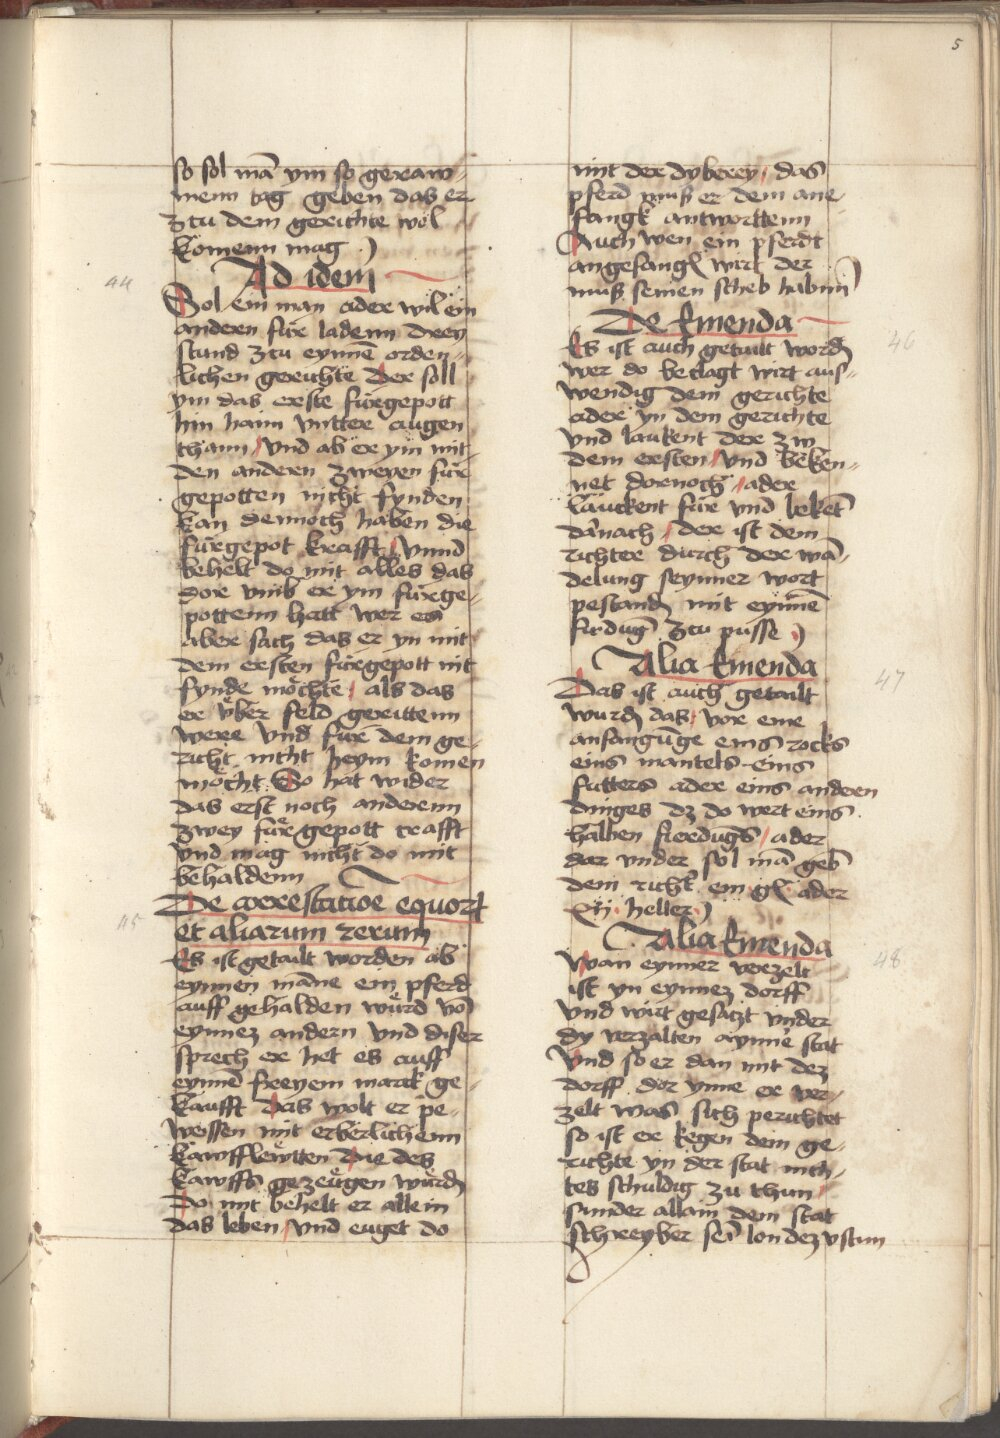 5
so sol mā ym so geraw-
menn tag geben das er
ztu dem gerichte wol
komenn mag
44
Ad idem
Sol ein man ader wil ein
andern für ladenn drey
stund ztu eynnē orden-
lichen gerichte Der soll
ym das erste fürgepott
hin haim vntter augen
thann / vnd ab er ym mit
den andern zweyen für
gepotten nicht fynden
kan dennoch haben die
fürgepot krafft / vnnd
behelt do mit alles das
dor vmb er ym fürge-
pottenn hatt wer es
aber sach das er yn mit
dem ersten fürgepott nit
fynde möchte / als das
er vber feld gerittenn
were vnd für dem ge-
richt nicht heym komen
möcht So hat wider
das erst noch anderenn
zwey fürgepott crafft
vnd mag nicht do mit
behaldenn
45
De arrestacioe equorū
et aliarum rerum
Es ist getailt worden ab
eynnen māne ein pferd
auff gehalden würd vō
eynnez andern vnd diser
sprech er het es auff
eynnē freyem marck ge-
kaufft das wolt er pe-
weyssen mit erberlichenn
kawfflewtten die des
kawffs gezeugen würdē
do mit behelt er allein
das leben / vnd euget do
mit der dyberey / das
pferd mus er dem ane-
fangk antworttenn
Auch wen ein pferdt
angefangē wirt der
mus seinen scheb habnn
46
De Emenda
Es ist auch getailt wordē
wer do beclagt wirt aus-
wendig dem gerichte
ader yn dem gerichte
vnd laukent der zw
dem ersten / vnd beken-
net dornoch / ader
lauckent für vnd bekēt
dānach / der ist dem
richter durch der wā-
delung seynner wort
pestandē mit eynnē
firdūg ztu pusse
47
Alia Emenda
Das ist auch getailt
wurdē das / vor eine
anfangūge eins rocks
eins mantels eins
futters ader eins anderen
dinges dz do wert eins
halben fierdūgs / ader
dar vnder sol mā gebē
dem richtē ein gl ader
xij heller
48
Alia Emenda
Wan eynner verzelt
ist yn eynnez dorff
vnd wirt gesaczt vnder
dy verzalten aynnē stat
vnd so er dan mit dez
dorff dor ynne er ver-
zelt was sich perichtet
so ist er kegen dem ge-
richte yn der stat nich-
tes schuldig zu thun /
sunder allain dem stat
schreyber sēi lon dez vstun